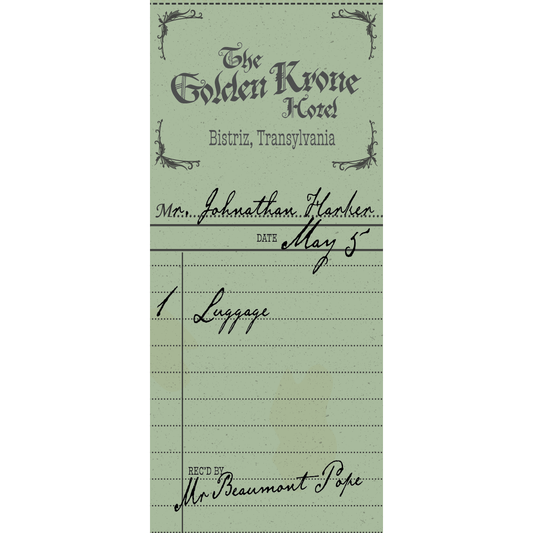 The
Golden Krone
Hotel
Bistriz, Transylvania
Mr. Johnathan Harker
DATE May 5
1 Luggage
REC'D BY
Mr Beaumont Pope